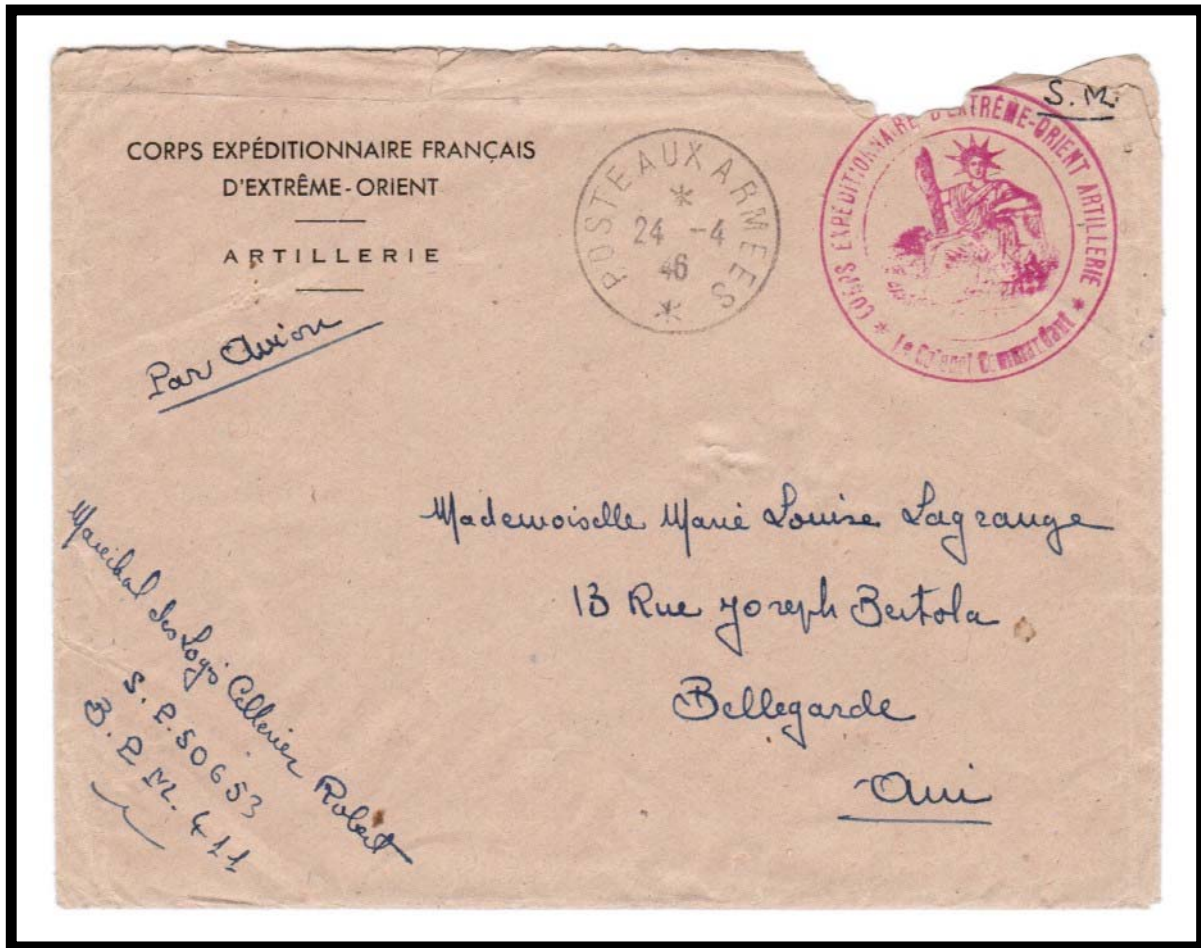 CORPS EXPÉDITIONNAIRE FRANÇAIS
D'EXTRÊME-ORIENT
ARTILLERIE
POSTE AUX ARMEES
24 -4
46
S.M.
CORPS EXPÉDITIONNAIRE D'EXTRÊME-ORIENT ARTILLERIE
Le Colonel Commandant
Par Avion
Mademoiselle Marie Louise Lagrange
13 Rue Joseph Bertola
Bellegarde
Ain
Maréchal des Logis Cellerier Robert
S.P. 50653
B.P.M. 411